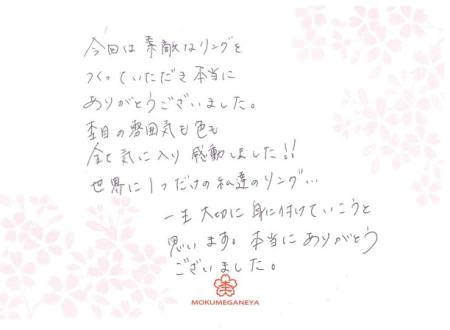 今回は素敵なリングを
つくっていただき本当に
ありがとうございました。
杢目の雰囲気も色も
全て気に入り感動しました!!
世界に1つだけの私達のリング…
一生大切に身に付けていこうと
思います。本当にありがとう
ございました。
杢
MOKUMEGANEYA